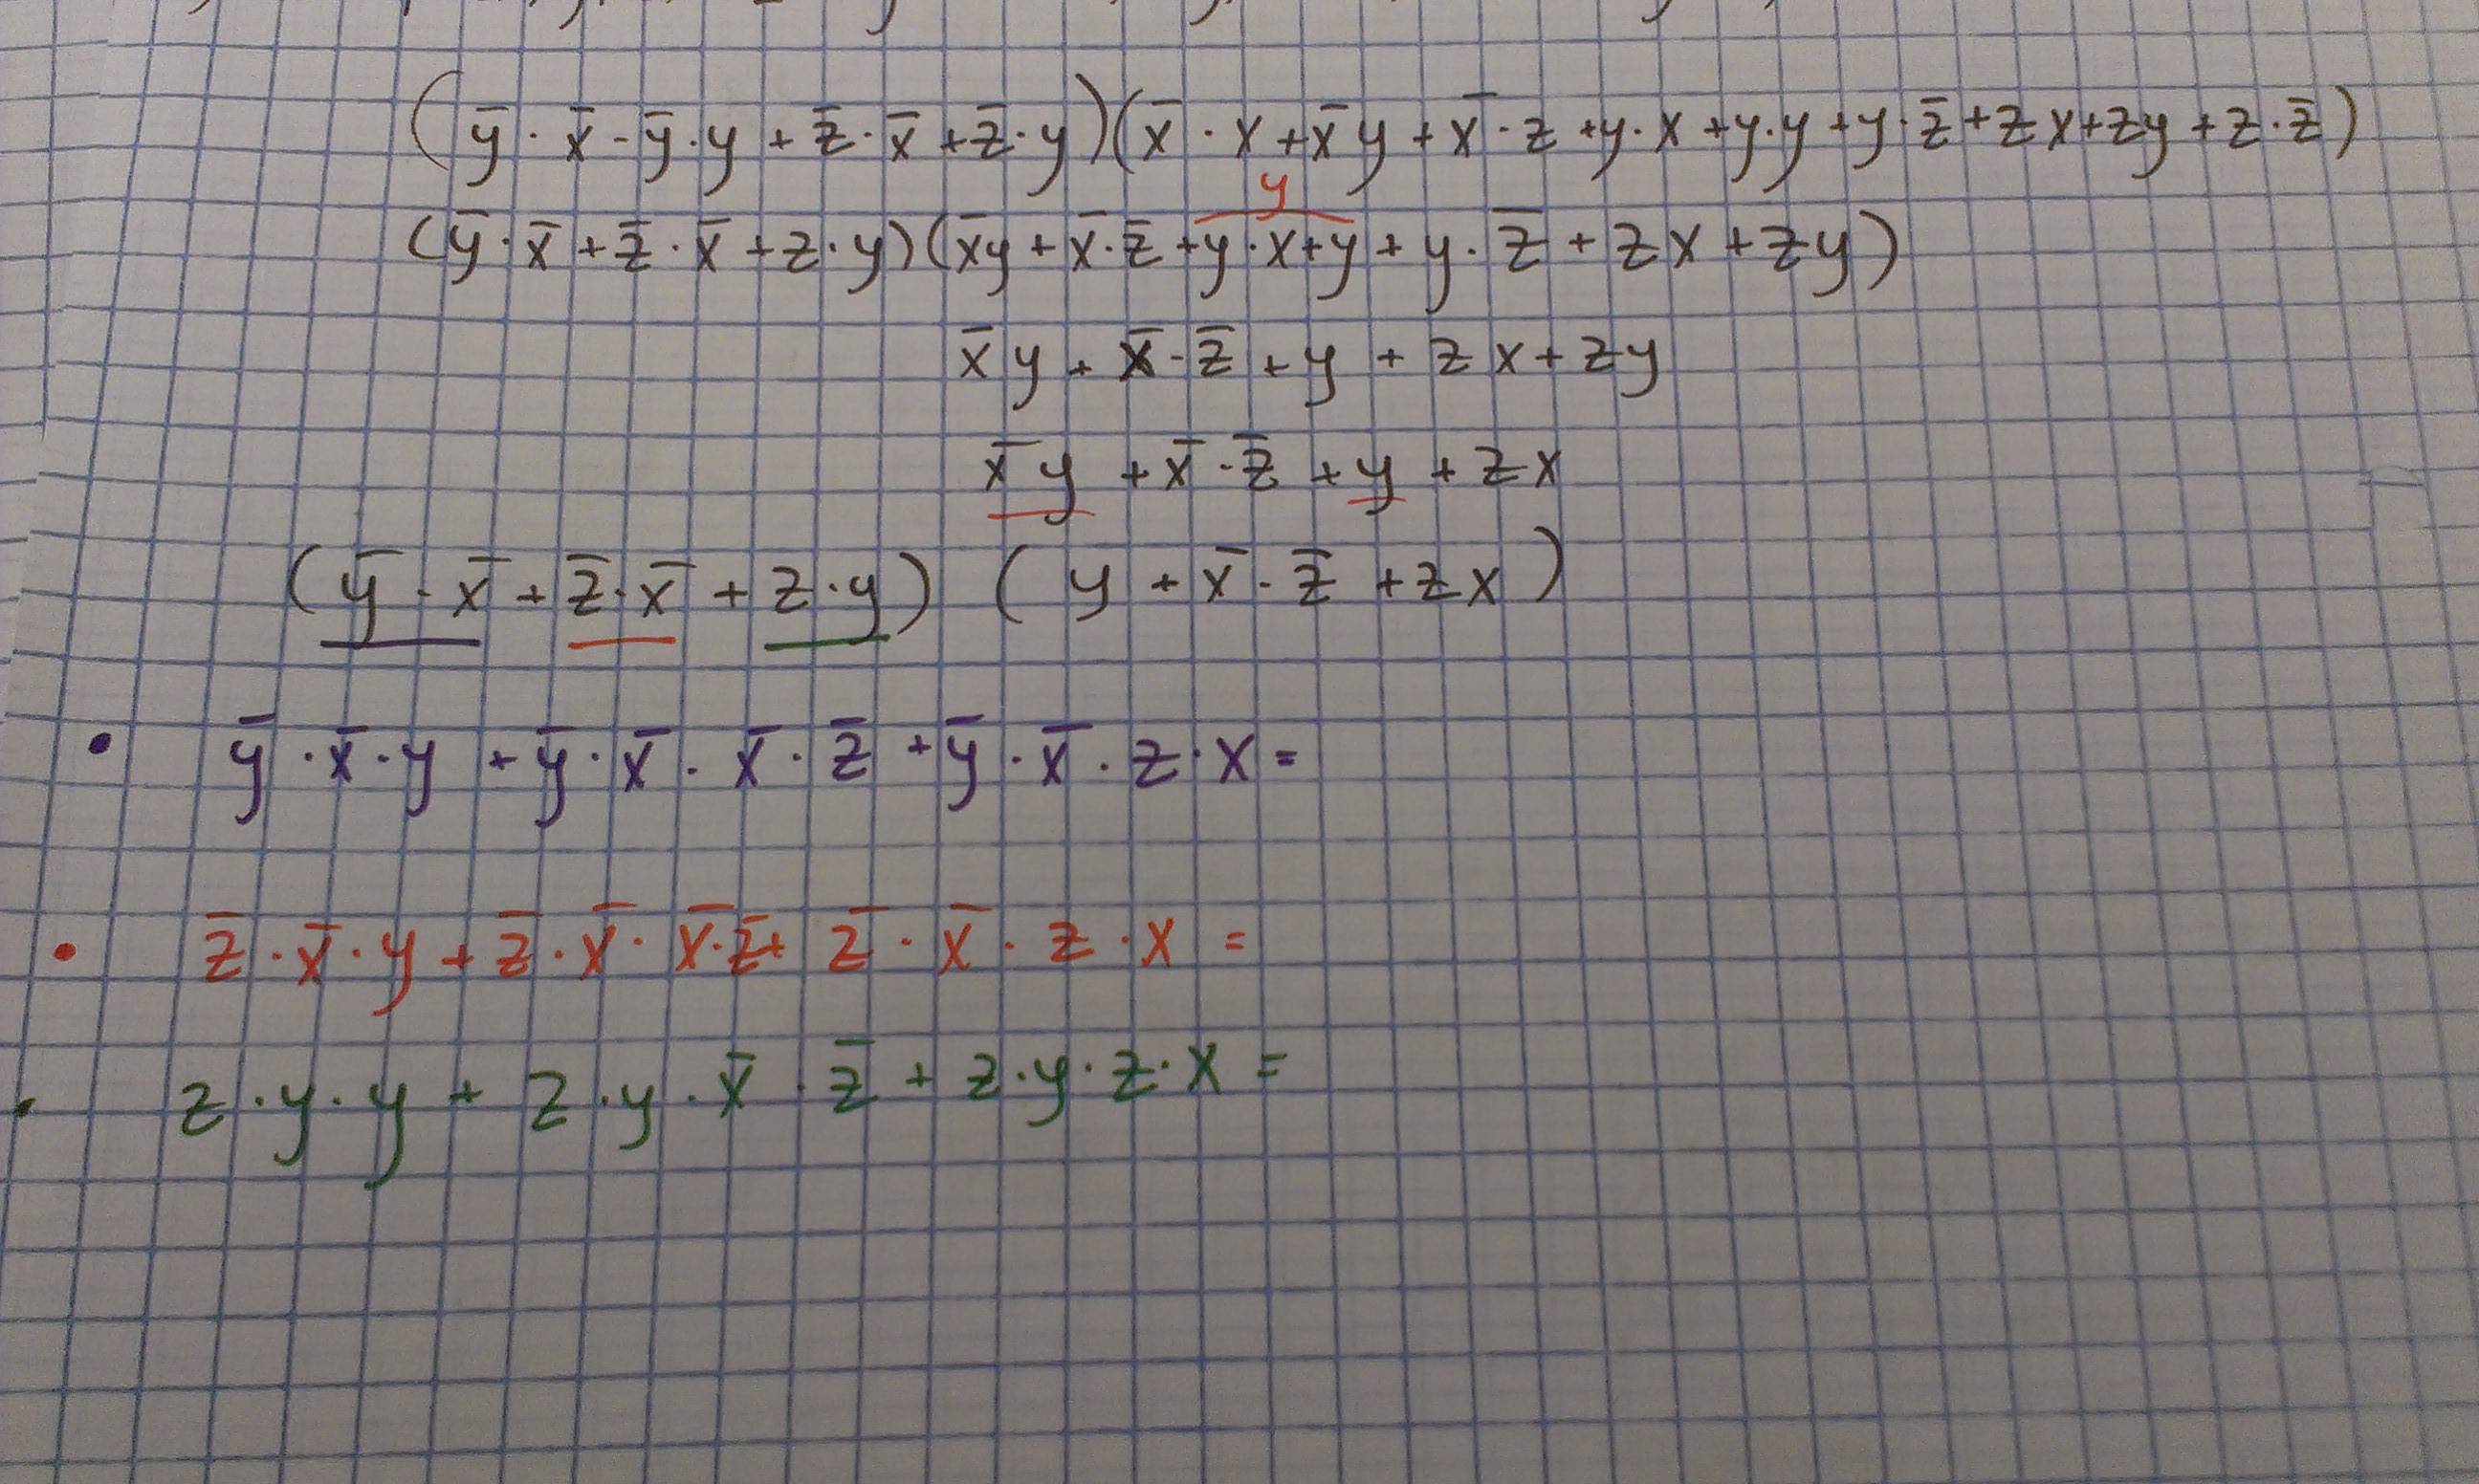 (ȳ · x̄ - ȳ · y + z̄ · x̄ + z̄ · y)(x̄ · x + x̄y + x̄ · z + y · x + y · y + y · z̄ + zx + zy + z · z̄)
y
(ȳ · x̄ + z̄ · x̄ + z · y)(x̄y + x̄ · z̄ + y · x + y + y · z̄ + zx + zy)
x̄y + x̄ · z̄ + y + zx + zy
x̄y + x̄ · z̄ + y + zx
(ȳ · x̄ + z̄ · x̄ + z · y) (y + x̄ · z̄ + zx)
• ȳ · x̄ · y + ȳ · x̄ · x̄ · z̄ + ȳ · x̄ · z · x =
• z̄ · x̄ · y + z̄ · x̄ · x̄ · z̄ + z̄ · x̄ · z · x =
• z · y · y + z · y · x̄ · z̄ + z · y · z · x =